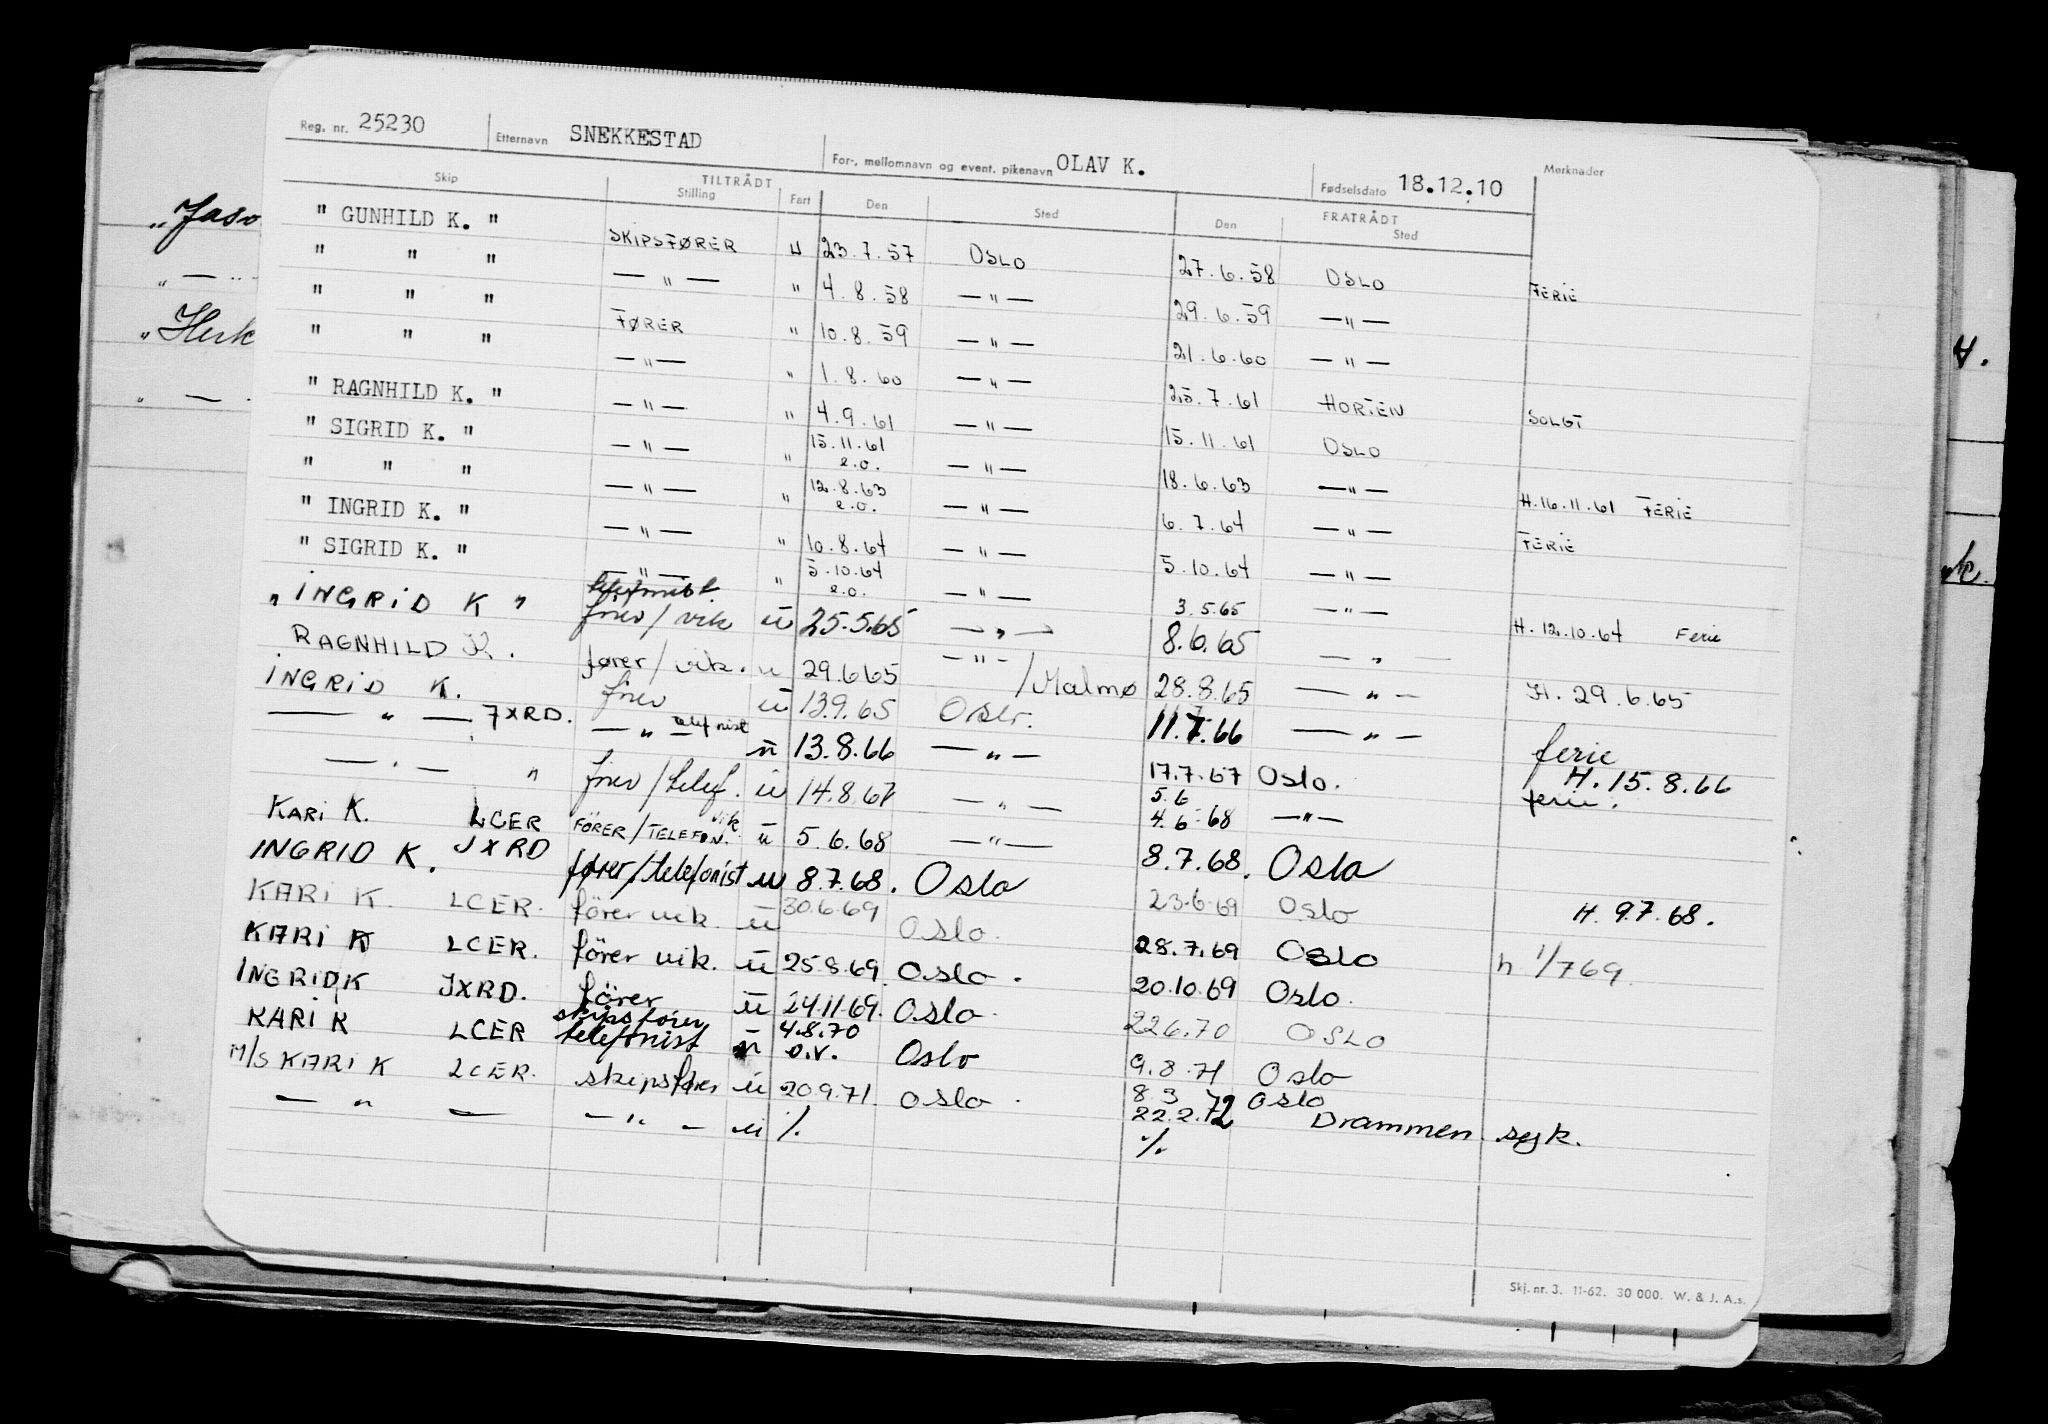 Reg. nr. 25230 Etternavn SNEKKESTAD For-, mellomnavn og event. pikenavn OLAV K. Fødselsdato 18.12.10 Merknader
Skip TILTRÅDT FRATRÅDT
Stilling Fart Den Sted Den Sted
" GUNHILD K. " SKIPSFØRER U 23.7.57 OSLO 27.6.58 OSLO FERIE
" " " — " — " 4.8.58 — " — 29.6.59 — " —
" " " FØRER " 10.8.59 — " — 21.6.60 — " —
" " " — " — " 1.8.60 — " — 25.7.61 HORTEN SOLGT
" RAGNHILD K. " — " — " 4.9.61 — " — 15.11.61 OSLO
" SIGRID K. " — " — " 15.11.61 e.o. — " — 18.6.63 — " — H.16.11.61 FERIE
" " " — " — " 12.8.63 e.o. — " — 6.7.64 — " — FERIE
" INGRID K. " — " — " 10.8.64 — " — 5.10.64 — " —
" SIGRID K. " — " — " 5.10.64 e.o. — " — 3.5.65 — " — H. 12.10.64 Ferie
" INGRID K " telefonist fører/vik ū 25.5.65 — " — 8.6.65 — " —
RAGNHILD K. fører/vik. u 29.6.65 — " — /Malmø 28.8.65 — " — H. 29.6.65
INGRID K. fører ū 13.9.65 Oslo. 11.7.66 — " — ferie
— " — JXRD. — " — telefonist ū 13.8.66 — " — 17.7.67 Oslo. H. 15.8.66 ferie.
— " — " fører/telef. ū 14.8.67 — " — 5.6 4.6.68 — " —
KARI K. LCER FÖRER/TELEFON. vik. ū 5.6.68 — " — 8.7.68. Oslo
INGRID K. JXRD fører/telefonist u 8.7.68. Oslo 23.6.69 Oslo H. 9.7.68.
KARI K. LCER. förer vik. ū 30.6.69 Oslo. 28.7.69 Oslo h 1/769
KARI K LCER. förer vik. ū 25.8.69 Oslo. 20.10.69 Oslo.
INGRID K JXRD. förer ū 24.11.69. Oslo. 22.6.70 OSLO
KARI K LCER skipsfører telefonist ū 4.8.70 o.v. Oslo 9.8.71 Oslo
M/S KARI K LCER. skipsfører ū 20.9.71. Oslo. 8.3.72 Oslo 22.2.72 Drammen syk.
— " — — " — ū %. %.
Skj. nr. 3. 11-62. 30 000. W. & J. A.s.
"Jaso
" —
"Herk
" —
4.
k.